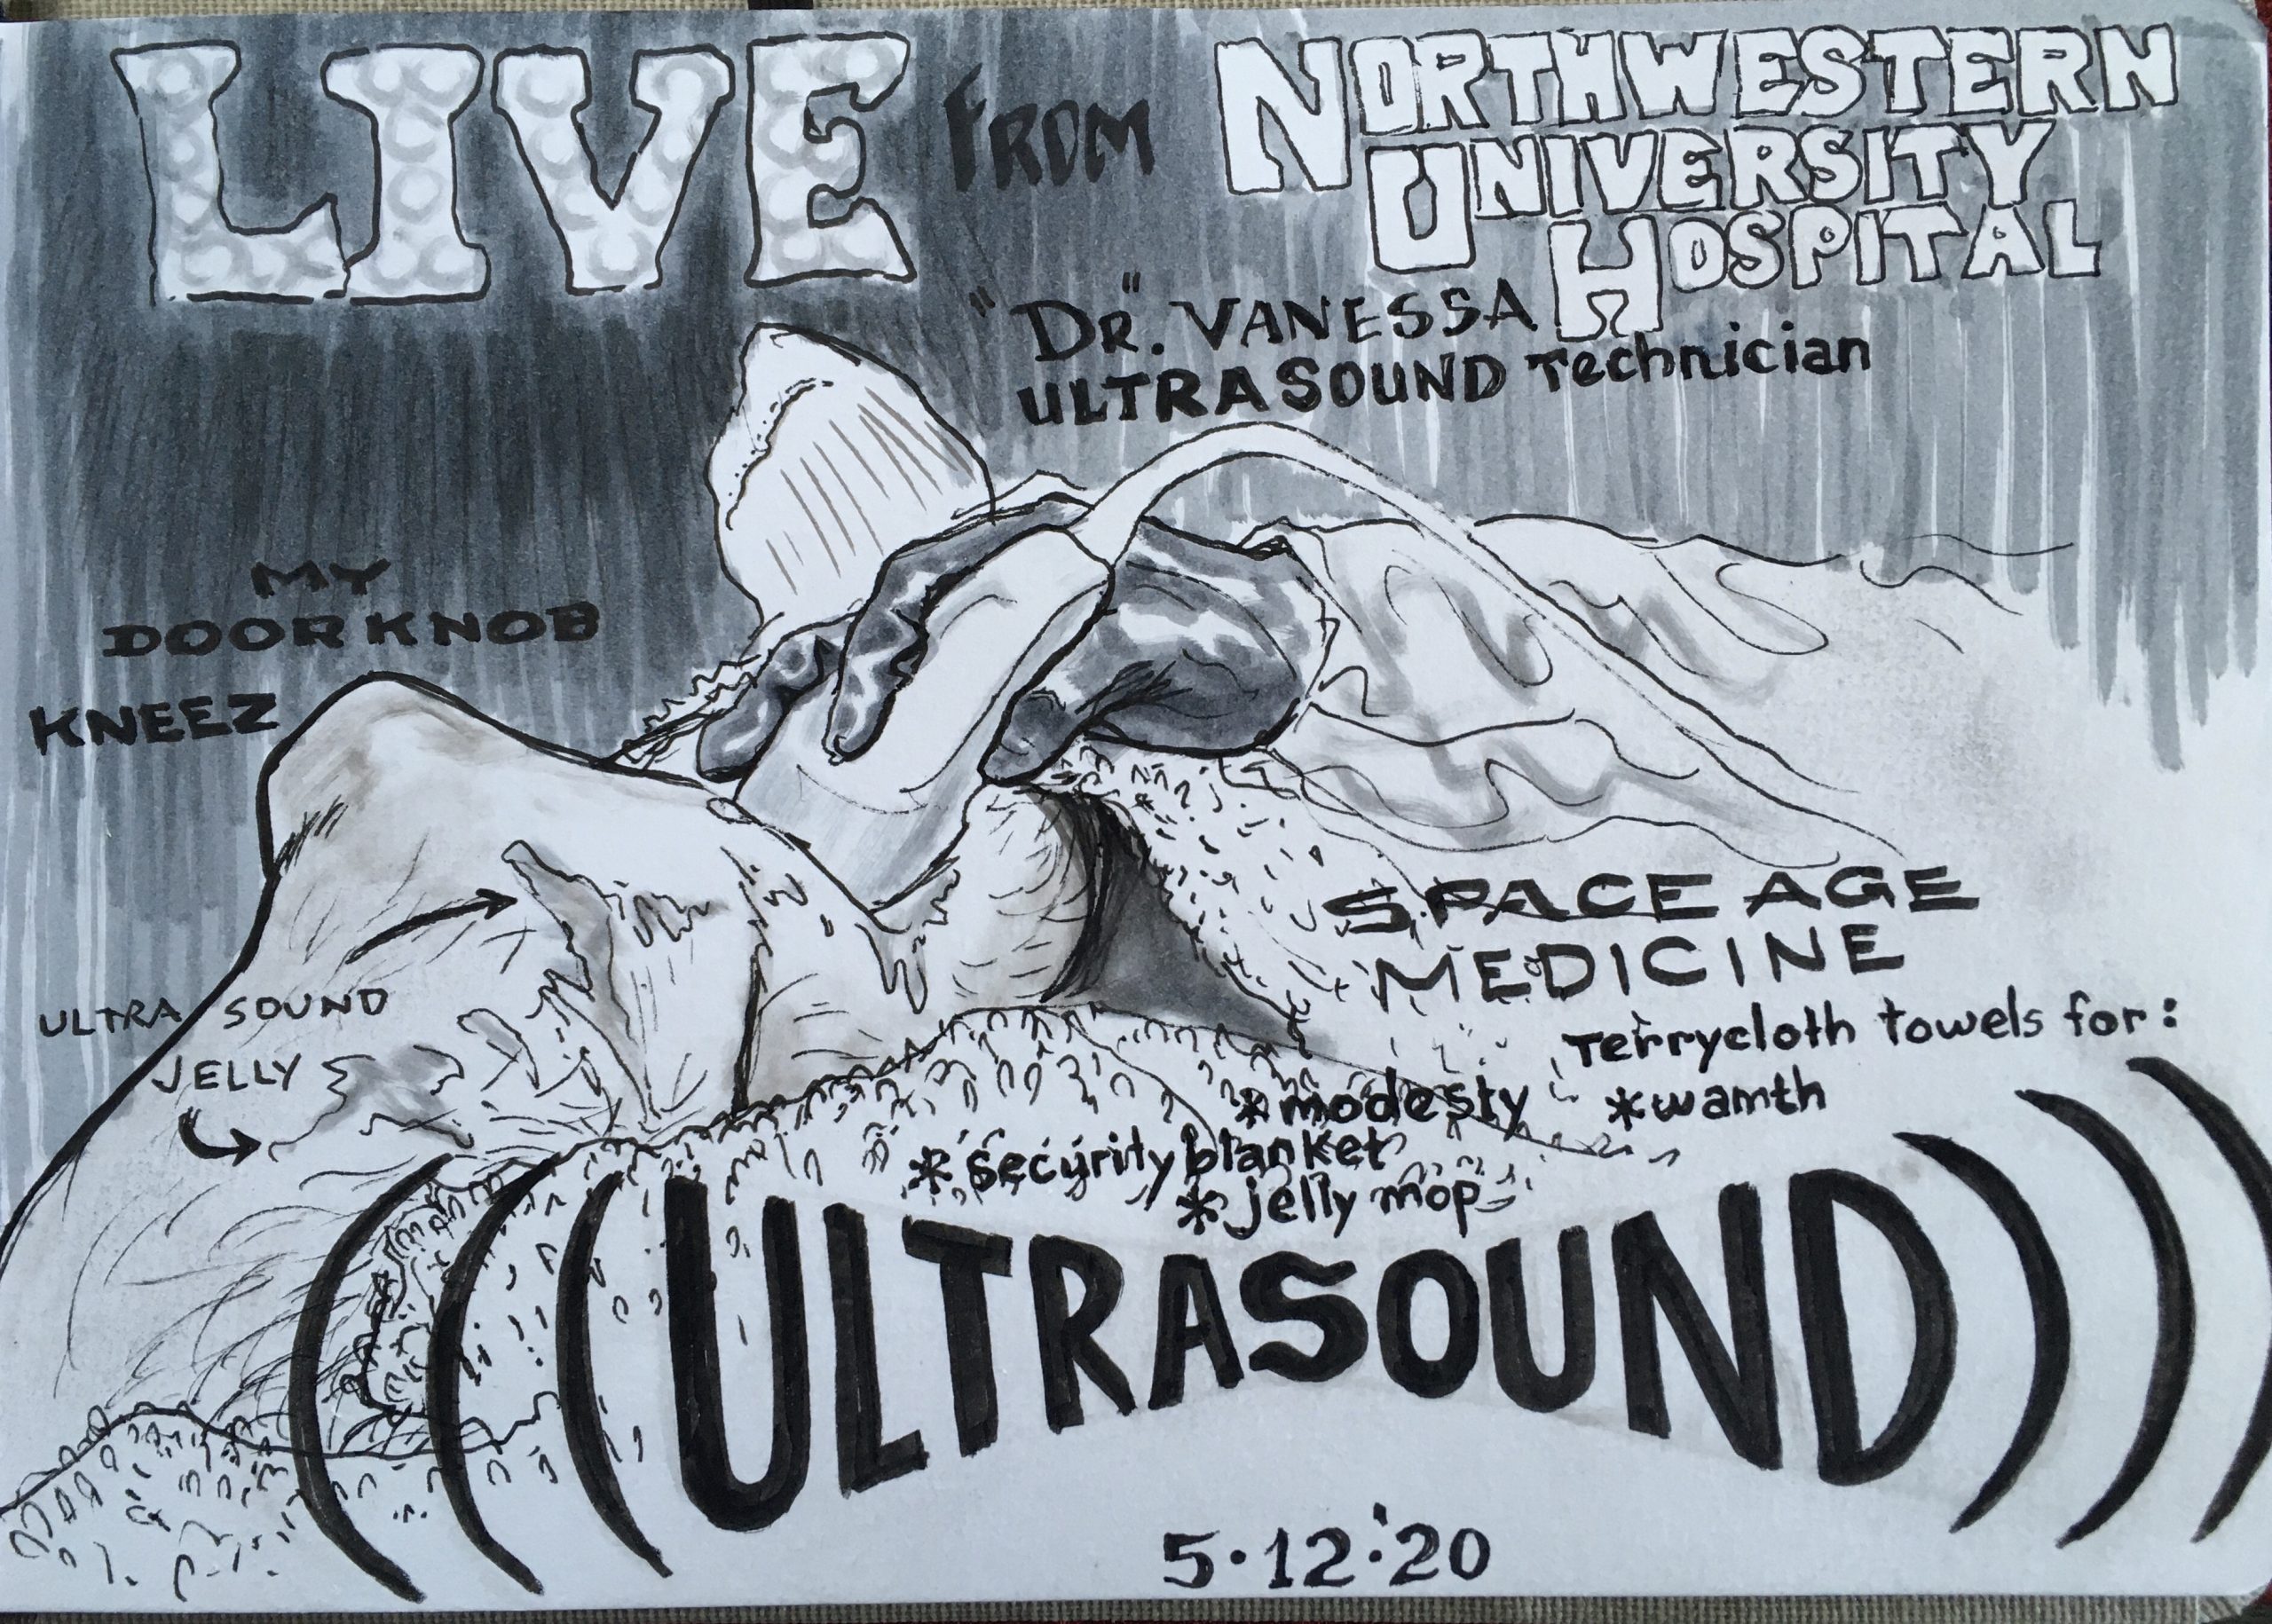 LIVE FROM NORTHWESTERN
UNIVERSITY
HOSPITAL
"DR". VANESSA
ULTRASOUND Technician
MY
DOORKNOB
KNEEZ
ULTRA SOUND
JELLY
SPACE AGE
MEDICINE
Terrycloth towels for:
*modesty *wamth
*security blanket
*jelly mop
(((ULTRASOUND)))
5·12·'20